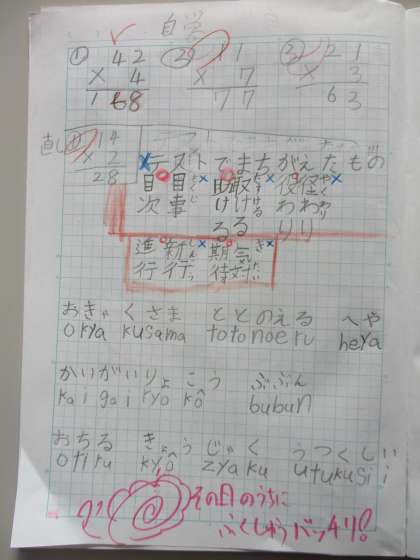 自学
① 42 ② 11 ③ 21
× 4 × 7 × 3
168 77 63
直し
14
× 2
28
×テストでまちがえたもの
目次 目事 助ける 取ける 役わり
進行 新行 期待 気
おきゃくさま ととのえる へや
okyakusama totonoeru heya
かいがいりょこう ぶぶん
kaigairyokô bubun
おちる きょうじゃく うつくしい
otiru kyôzyaku utukusii
その日のうちに
ふくしゅうバッチリ!